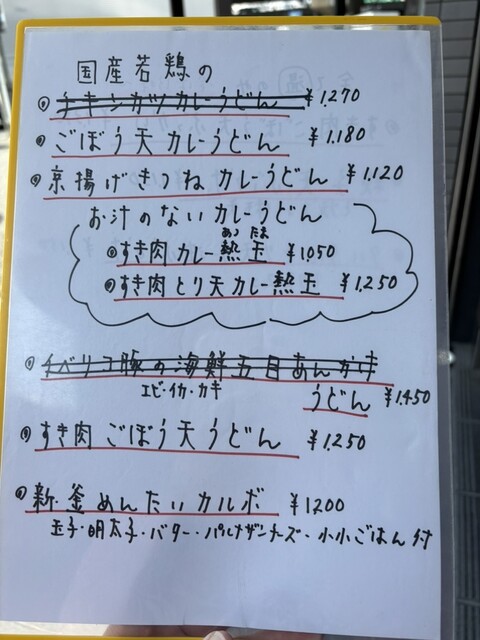 国産若鶏の
チキンカツカレーうどん ¥1,270
ごぼう天カレーうどん ¥1,180
京揚げきつねカレーうどん ¥1,120
お汁のないカレーうどん
あつ たま
すき肉カレー熱玉 ¥1,050
すき肉とり天カレー熱玉 ¥1,250
イベリコ豚の海鮮五目あんかけ
エビ・イカ・カキ
うどん ¥1,450
すき肉ごぼう天うどん ¥1,250
新・釜めんたいカルボ ¥1200
玉子・明太子・バター・パルメザンチーズ・小小ごはん付